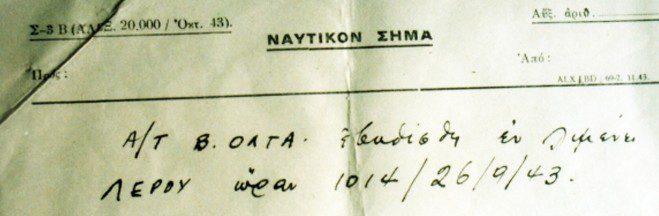 Σ-3 Β (ΑΛΕΞ. 20.000 / Ὀκτ. 43).
Αὔξ. ἀριθ.
ΝΑΥΤΙΚΟΝ ΣΗΜΑ
Πρός:
Ἀπό:
ALX (BD) 69-2. 11.43.
Α/Τ Β. ΟΛΓΑ. ἐβυθίσθη ἐν λιμένι
ΛΕΡΟΥ ὥραν 1014/26/9/43.